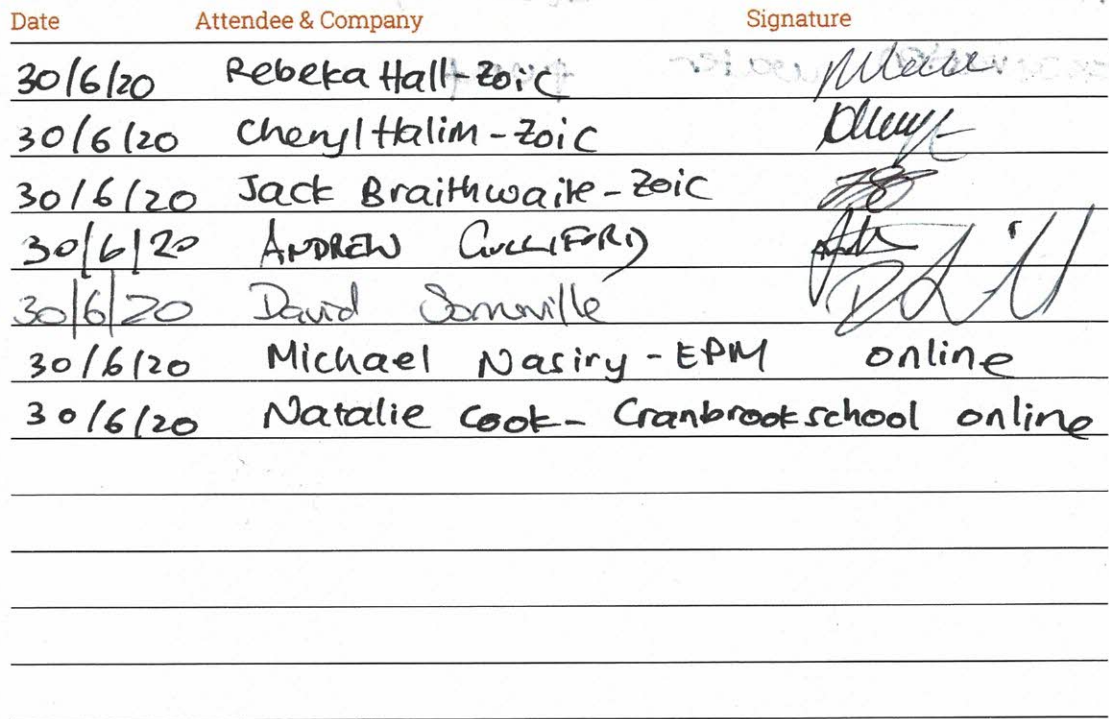 Date Attendee & Company Signature
30/6/20 Rebeka Hall-Zoic
30/6/20 Cheryl Halim-Zoic
30/6/20 Jack Braithwaite-Zoic
30/6/20 ANDREW GULLIFORD
30/6/20 David Somerville
30/6/20 Michael Nasiry-EPM online
30/6/20 Natalie Cook- Cranbrook school online